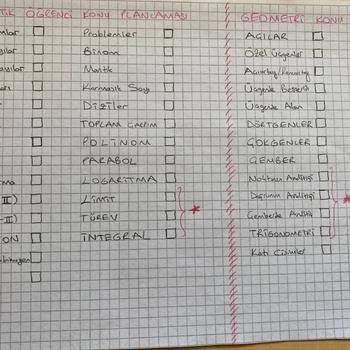 TİK ÖĞRENCİ KONU PLANLAMASI
Problemler
Binom
Mantık
Karmaşık Sayı
Diziler
TOPLAM ÇARPIM
POLİNOM
PARABOL
LOGARİTMA
LİMİT
TÜREV
İNTEGRAL
II)
-II)
ON
GEOMETRİ KONU
AÇILAR
Özel Üçgenler
Açıortay/Kenarortay
Üçgende Benzerlik
Üçgende Alan
DÖRTGENLER
ÇOKGENLER
ÇEMBER
Noktanın Analitiği
Doğrunun Analitiği
Çemberin Analitiği
TRİGONOMETRİ
Katı Cisimler